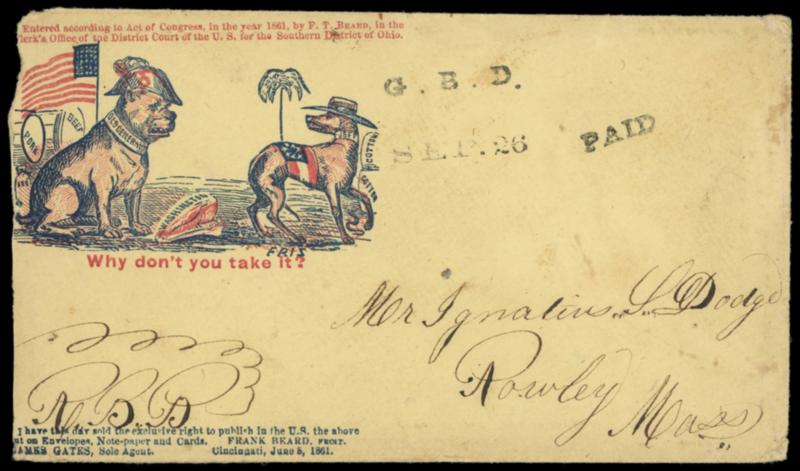 Entered according to Act of Congress, in the year 1861, by F. T. BEARD, in the
lerk's Office of the District Court of the U. S. for the Southern District of Ohio.
G. B. D.
SEP. 26
PAID
PORK
BEEF
GEN
WASHINGTON
COTTON
COTTON
Why don't you take it?
Mr Ignatius. S. Dodge
Rowley
Mass
I have this day sold the exclusive right to publish in the U.S. the above
ut on Envelopes, Note-paper and Cards. FRANK BEARD,
JAMES GATES, Sole Agent. Cincinnati, June 8, 1861.